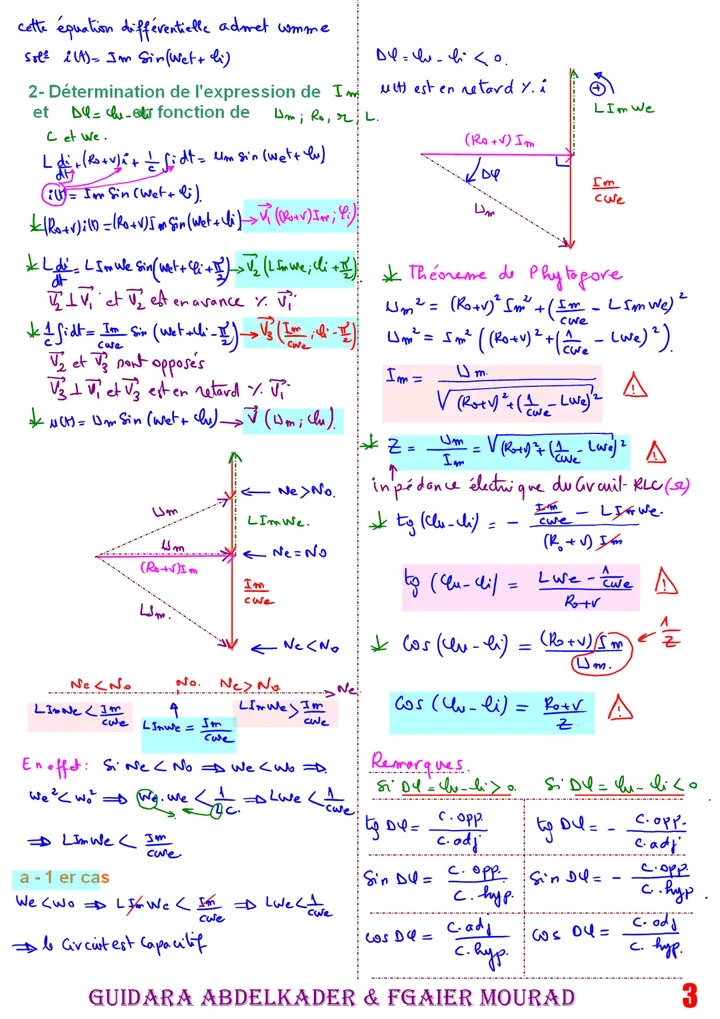 cette équation différentielle admet comme
solº i(t) = Im Sin(wet + φi)
2- Détermination de l'expression de Im
et Δφ = φu - φi en fonction de Um ; Ro, r, L.
C et we.
L di/dt + (Ro+r)i + 1/c ∫i dt = Um sin(wet + φu)
i(t) = Im Sin(wet + φi).
(Ro+r)i(t) = (Ro+r)Im Sin(wet + φi) → V₁((Ro+r)Im ; φi)
L di/dt = LImwe Sin(wet + φi + π/2) → V₂(LImwe ; φi + π/2)
V₂ ⊥ V₁ et V₂ est en avance % V₁
1/c ∫i dt = Im/cwe Sin(wet + φi - π/2) → V₃(Im/cwe ; φi - π/2)
V₂ et V₃ sont opposés
V₃ ⊥ V₁ et V₃ est en retard % V₁.
u(t) = Um Sin(wet + φu) → V(Um ; φu).
Ne > No.
Um
LImwe.
Um
Ne = No
(Ro+r)Im
Im/cwe
Um.
Ne < No
Ne < No No. Ne > No Ne
LImwe < Im/cwe LImwe = Im/cwe LImwe > Im/cwe
En effet : Si Ne < No ⇒ we < wo ⇒
we² < wo² ⇒ we.we < 1/LC. ⇒ Lwe < 1/cwe
⇒ LImwe < Im/cwe
a - 1 er cas
we < wo ⇒ LImwe < Im/cwe ⇒ Lwe < 1/cwe
⇒ le Circuit est Capacitif
Δφ = φu - φi < 0.
u(t) est en retard % i
+
LImwe
(Ro+r)Im
Δφ
Im/cwe
Um
Théoreme de Phytagore
Um² = (Ro+r)² Im² + (Im/cwe - LImwe)²
Um² = Im² ((Ro+r)² + (1/cwe - Lwe)²).
Im = Um / √((Ro+r)² + (1/cwe - Lwe)²)
Z = Um/Im = √((Ro+r)² + (1/cwe - Lwe)²)
impédance électrique du Circuit RLC (Ω)
tg(φu - φi) = - (Im/cwe - LImwe) / ((Ro+r)Im)
tg(φu - φi) = (Lwe - 1/cwe) / (Ro+r)
Cos(φu - φi) = (Ro+r)Im / Um. ← 1/Z
Cos(φu - φi) = (Ro+r)/Z
Remarques.
Si Δφ = φu - φi > 0. Si Δφ = φu - φi < 0
tg Δφ = C.opp/C.adj tg Δφ = - C.opp/C.adj
Sin Δφ = C.opp/C.hyp. Sin Δφ = - C.opp/C.hyp.
cos Δφ = C.adj/C.hyp. cos Δφ = C.adj/C.hyp.
GUIDARA ABDELKADER & FGAIER MOURAD 3